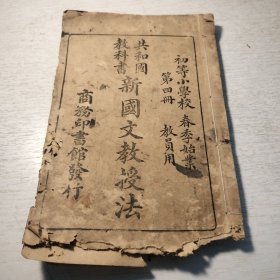 初等小學校 春季始業
第四冊 教員用
共和國
教科書
新國文教授法
商務印書館發行